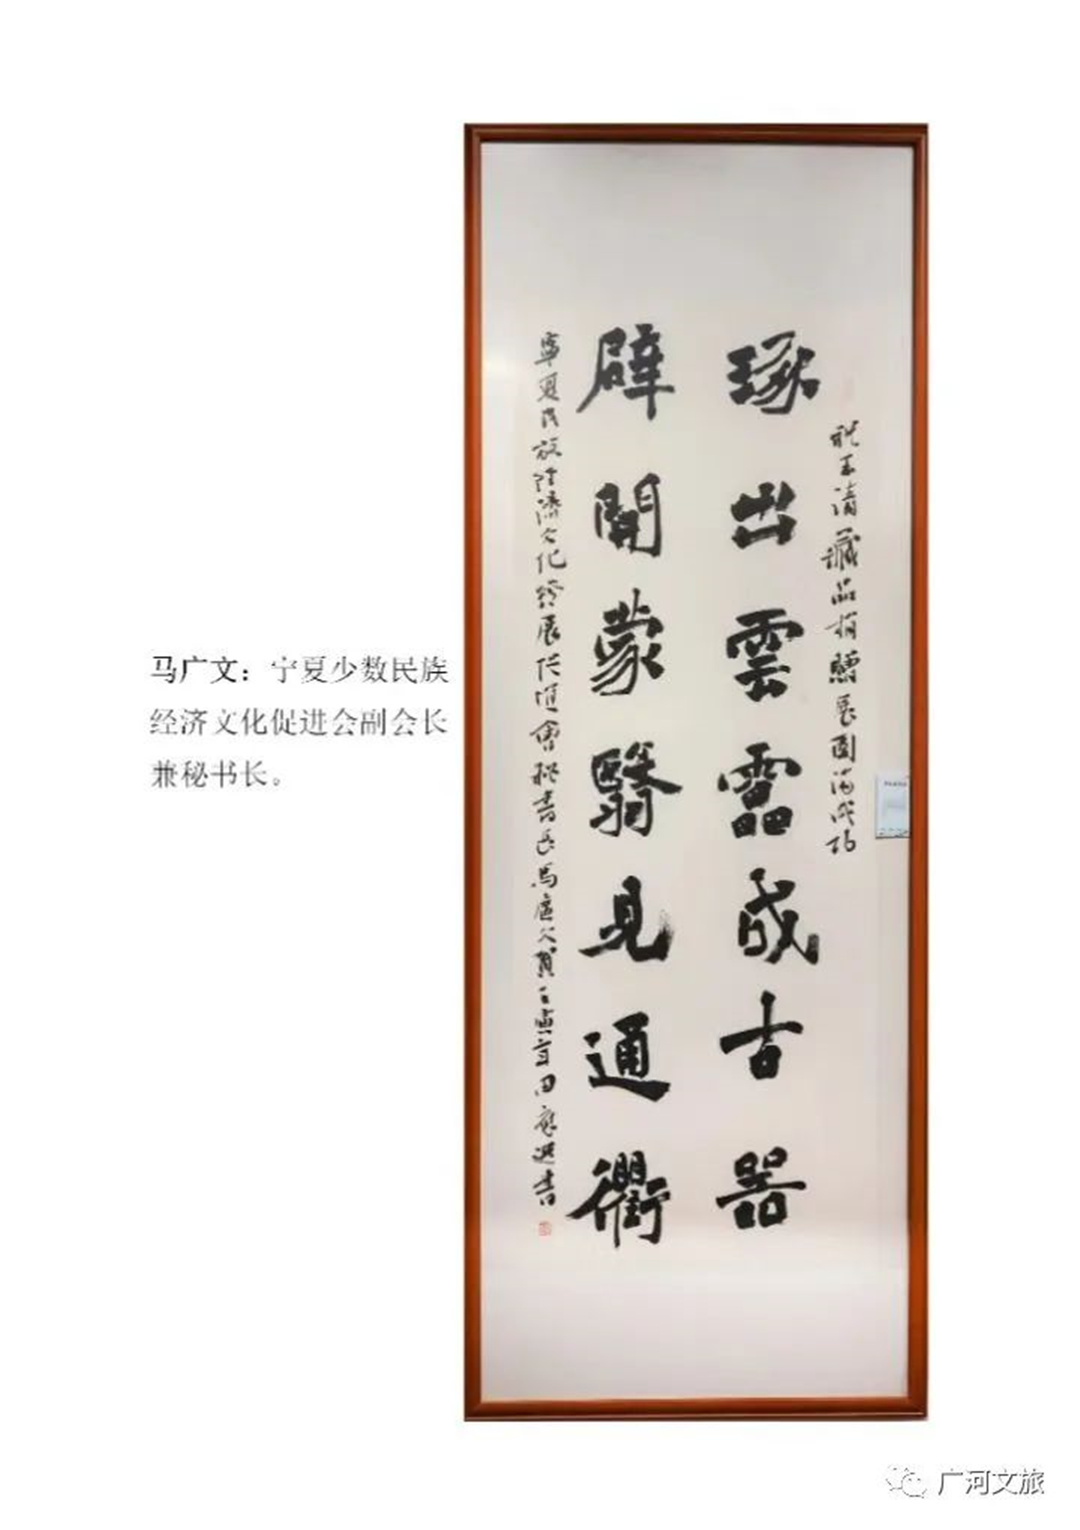 祝王清藏品捐贈展圆滿成功
琢出雲雷成古器
闢開蒙翳見通衢
寧夏民族经濟文化發展促進會秘書長馬廣文賀壬寅年田應選書
马广文：宁夏少数民族
经济文化促进会副会长
兼秘书长。
广河文旅